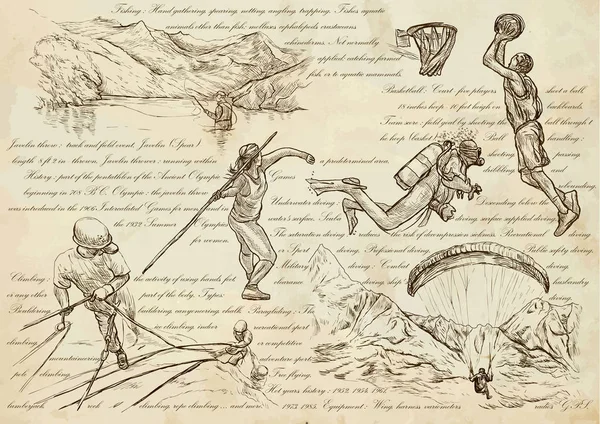 Fishing: Hand gathering, spearing, netting, angling, trapping. Fishes, aquatic
animals other than fish: molluscs, cephalopods, crustaceans
echinoderms. Not normally
applied: catching farmed
fish, or to aquatic mammals
Basketball: Court: five players shoot a ball
18 inches hoop 10 feet heigh on backboards.
Team score: field goal by shooting the ball through t
he hoop (basket Ball handling:
shooting, passing
dribbling, and
rebounding.
Javelin throw: track and field event. Javelin (Spear)
length 8 ft 2 in thrown. Javelin thrower: running within a predetermined area.
History: part of the pentathlon of the Ancient Olympic Games
beginning in 708 B.C. Olympic: the javelin throw
was introduced in the 1906 Intercalated Games for men and in
the 1932 Summer Olympics
for women.
Underwater diving: Descending below the
water's surface. Scuba diving, surface supplied diving.
The saturation diving reduces the risk of decompression sickness. Recreational diving
or Sport diving. Professional diving. Public safety diving,
Military diving: Combat diving,
clearance diving, ship husbandry
diving.
Climbing: the activity of using hands, feet
or any other part of the body. Types:
Bouldering, canyoneering, chalk
climbing, ice climbing, indoor
mountaineering
pole climbing,
lumberjack, rock climbing, rope climbing ... and more.
Paragliding: The
recreational sport
or competitive
adventure sport:
Free flying.
Hot years history: 1952, 1954, 1961,
1973, 1985. Equipment: Wing, harness, variometers
radio, G.P.S.